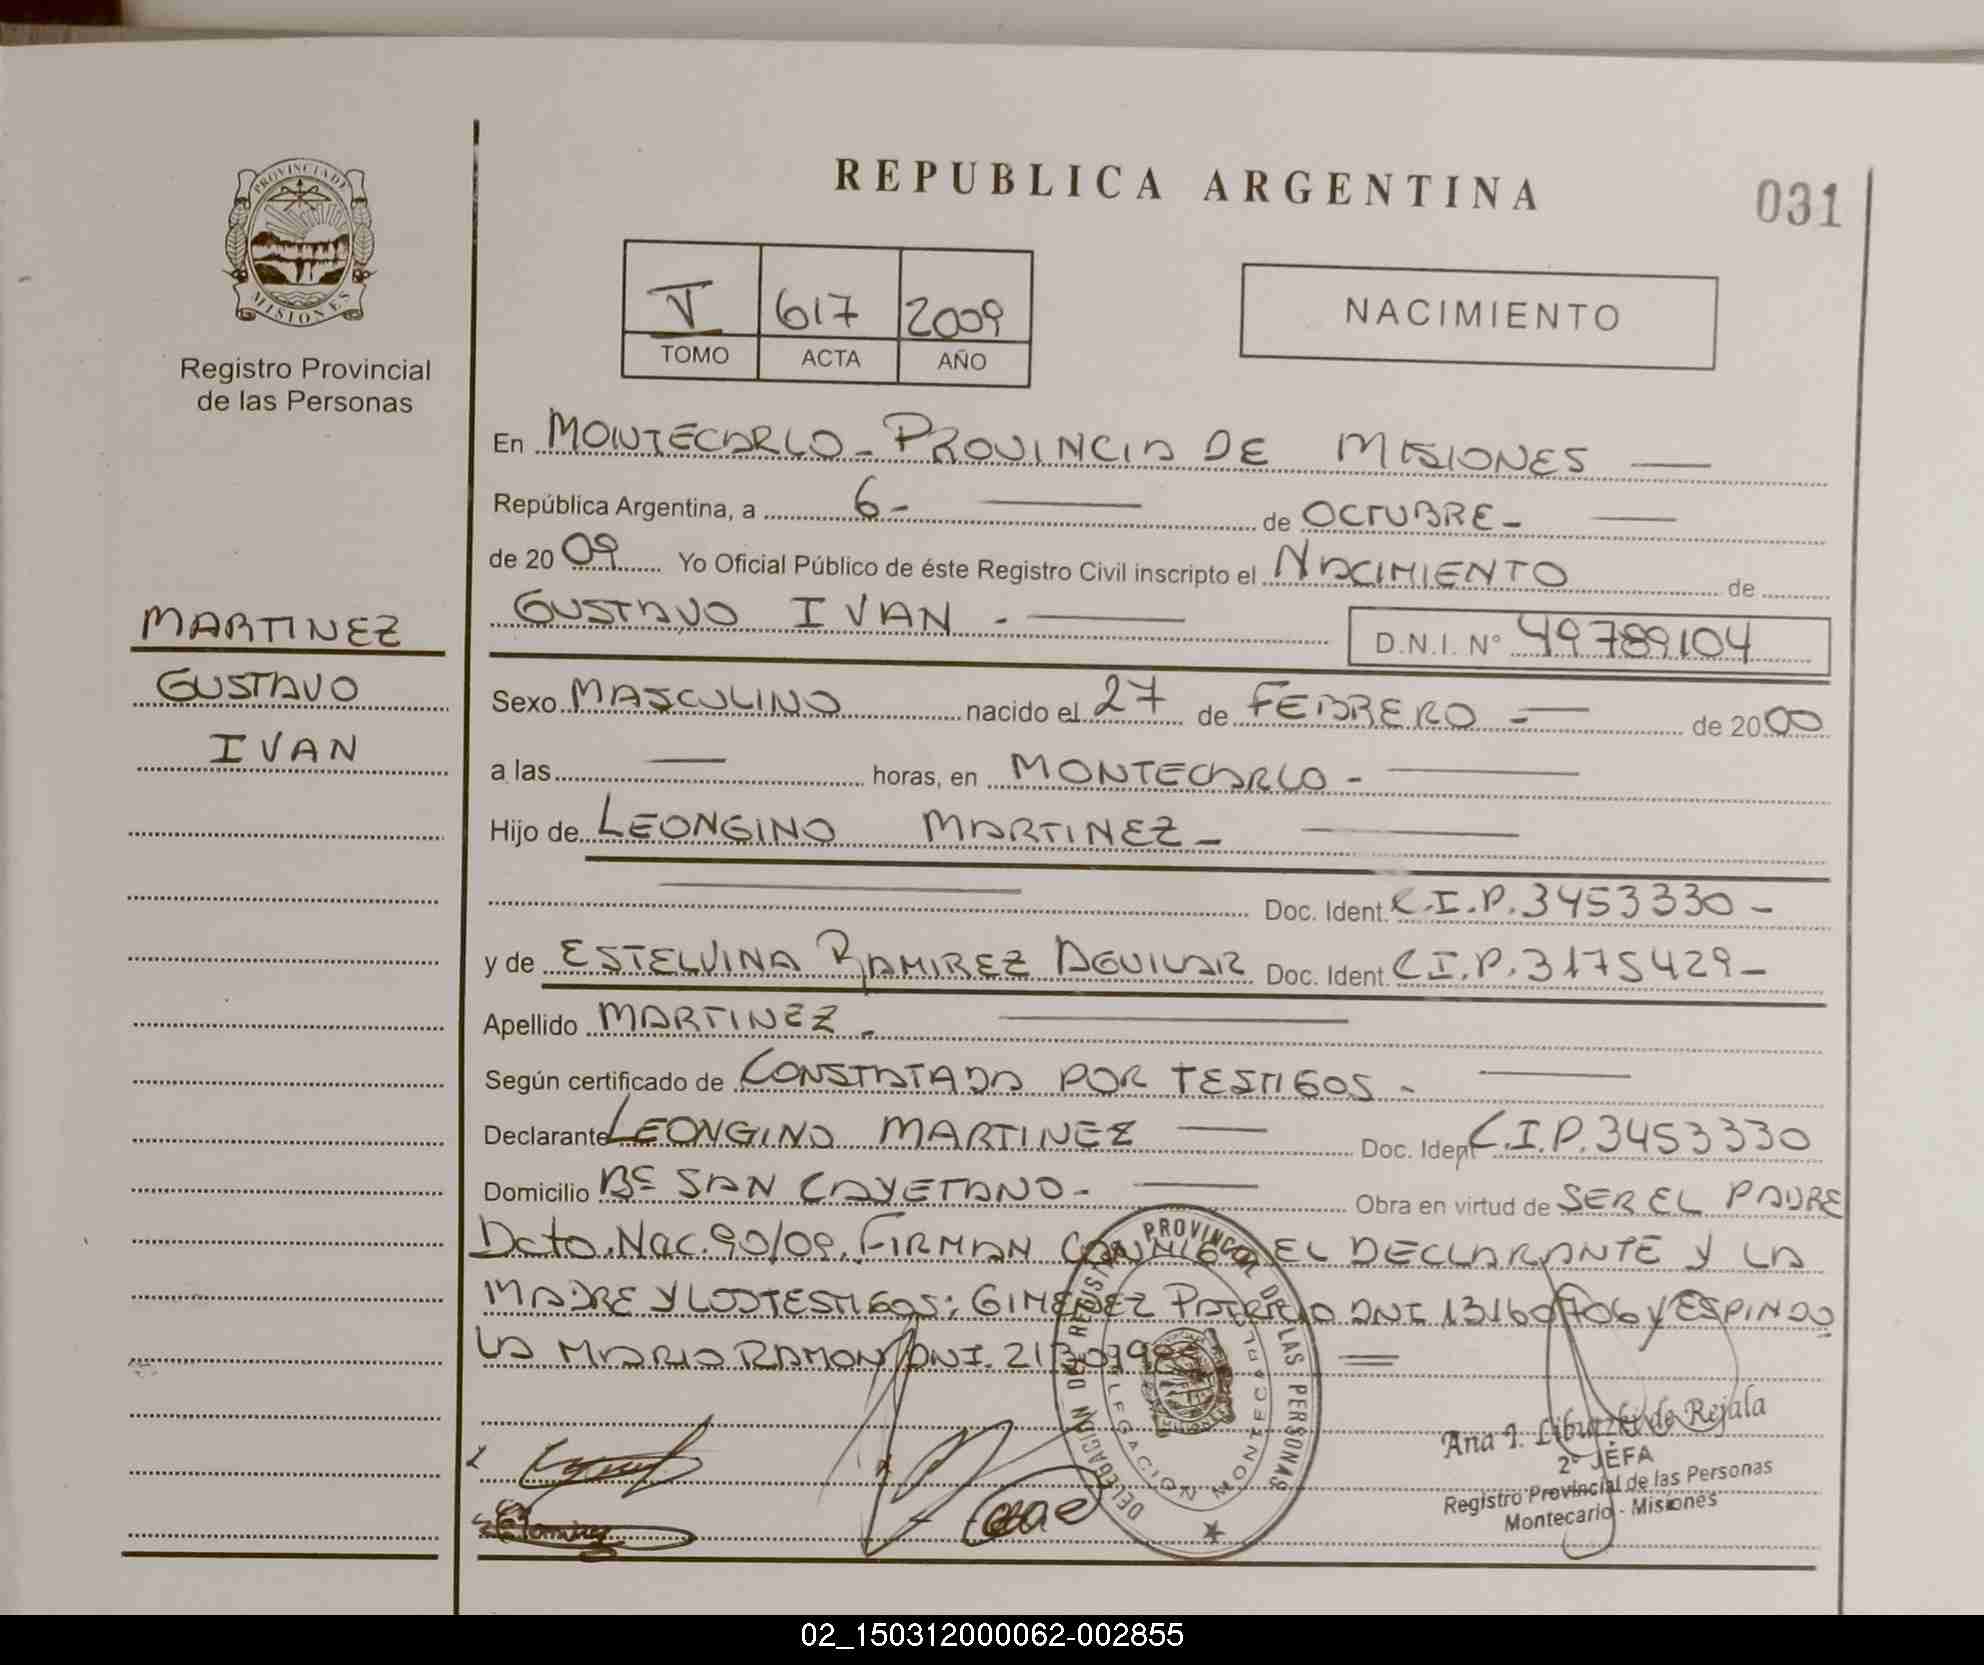 REPUBLICA ARGENTINA
031
PROVINCIA DE
MISIONES
Registro Provincial
de las Personas
V 617 2009
TOMO ACTA AÑO
NACIMIENTO
En MONTECARLO - PROVINCIA DE MISIONES
República Argentina, a 6 - de OCTUBRE -
de 2009 Yo Oficial Público de éste Registro Civil inscripto el NACIMIENTO de
GUSTAVO IVAN - D.N.I. N° 49789104
MARTINEZ
GUSTAVO
IVAN
Sexo MASCULINO nacido el 27 de FEBRERO - de 2000
a las — horas, en MONTECARLO -
Hijo de LEONGINO MARTINEZ -
Doc. Ident. C.I.P. 3453330 -
y de ESTELVINA RAMIREZ AGUILAR Doc. Ident. C.I.P. 3175429 -
Apellido MARTINEZ -
Según certificado de CONSTATADA POR TESTIGOS -
Declarante LEONGINO MARTINEZ Doc. Ident C.I.P. 3453330
Domicilio B° SAN CAYETANO - Obra en virtud de SER EL PADRE
Dcto. Nac. 90/09. FIRMAN CONMIGO EL DECLARANTE Y LA
MADRE Y LOS TESTIGOS: GIMENEZ PATRICIO DNI 13160706 Y ESPINDO
LA MARIO RAMON DNI.
DELEGACION DEL REGISTRO PROVINCIAL DE LAS PERSONAS
DELEGACION MONTECARLO
Ana I. de Rejala
2° JEFA
Registro Provincial de las Personas
Montecarlo - Misiones
02_150312000062-002855